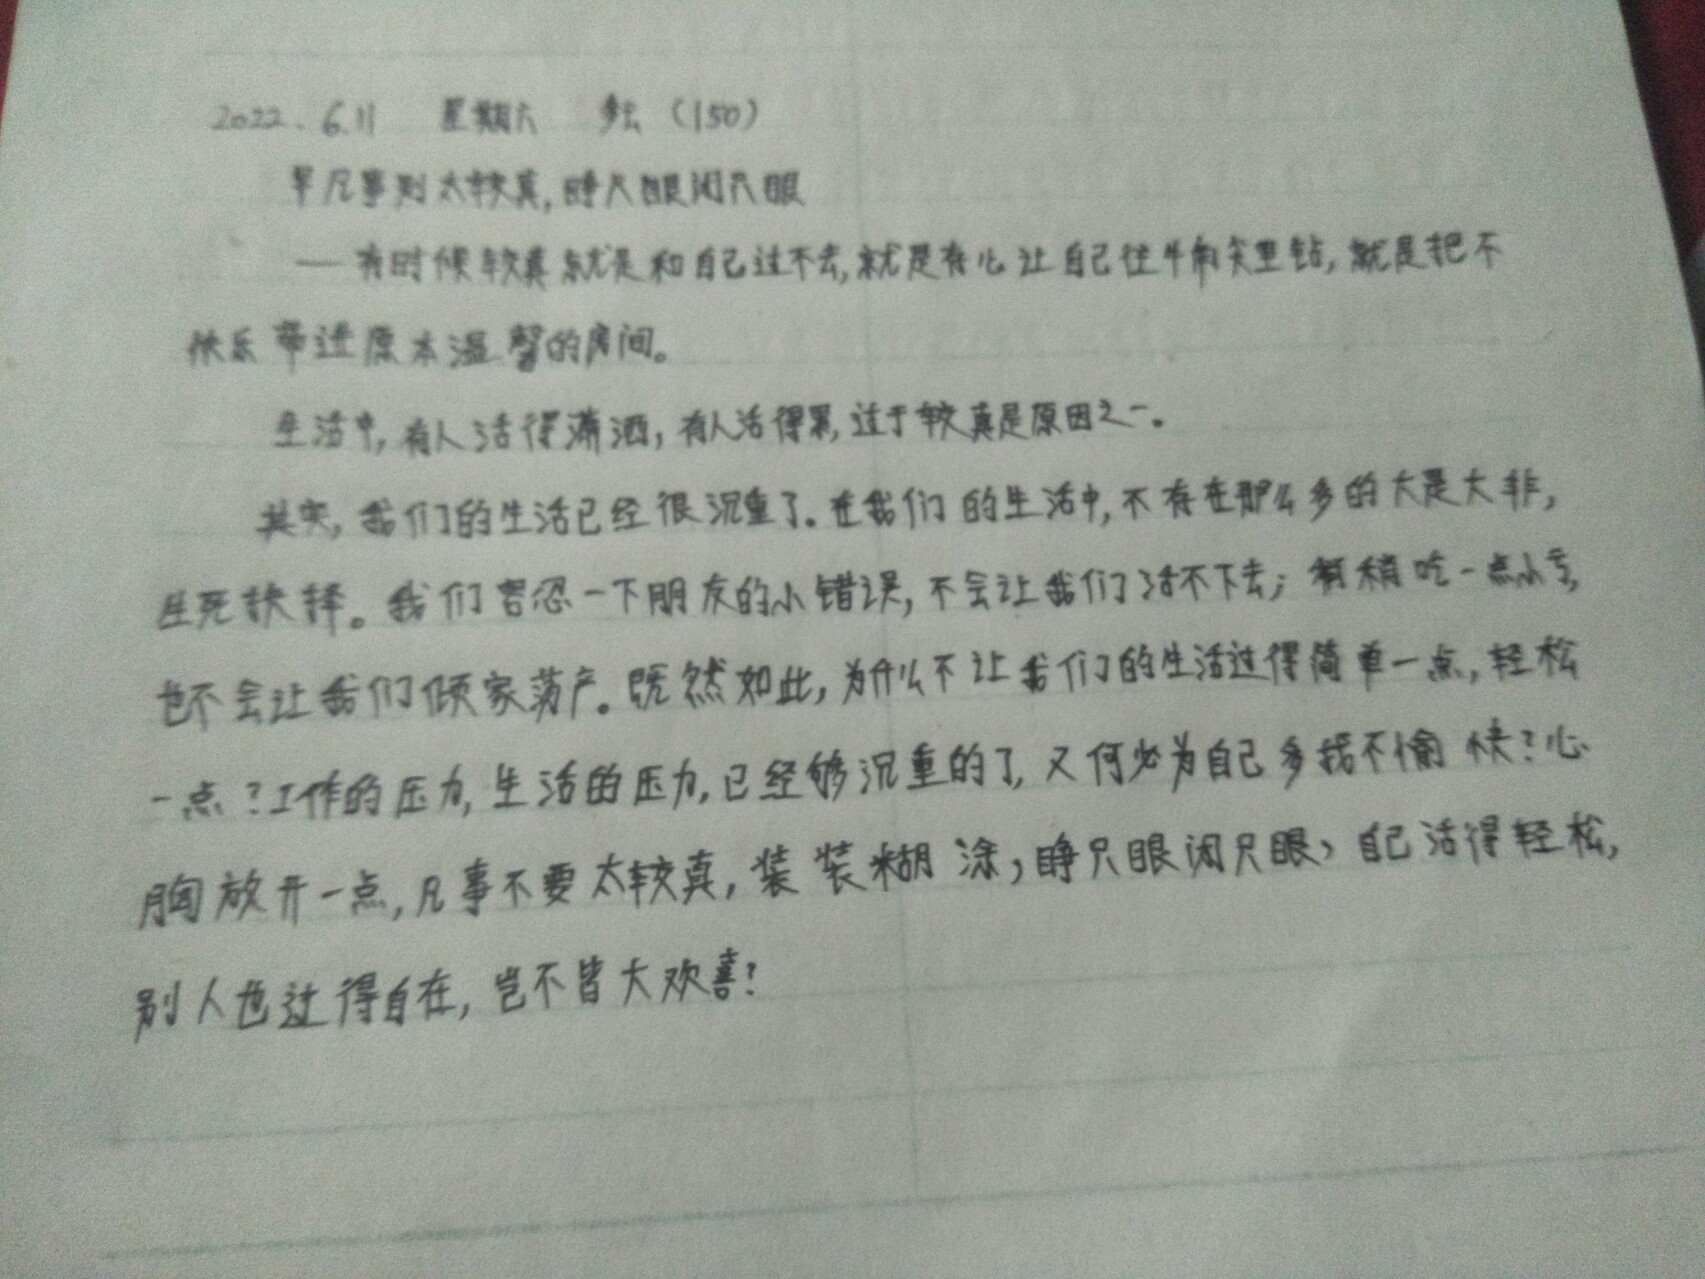 2022.6.11 星期六 多云（150）
凡事别太较真，睁只眼闭只眼
——有时候较真就是和自己过不去，就是有心让自己往牛角尖里钻，就是把不
快乐带进原本温馨的房间。
生活中，有人活得潇洒，有人活得累，过于较真是原因之一。
其实，我们的生活已经很沉重了。在我们的生活中，不存在那么多的大是大非，
生死抉择。我们容忍一下朋友的小错误，不会让我们活不下去；稍稍吃一点小亏，
也不会让我们倾家荡产。既然如此，为什么不让我们的生活过得简单一点，轻松
一点？工作的压力，生活的压力，已经够沉重的了，又何必为自己多找不愉快？心
胸放开一点，凡事不要太较真，装装糊涂，睁只眼闭只眼，自己活得轻松，
别人也过得自在，岂不皆大欢喜？